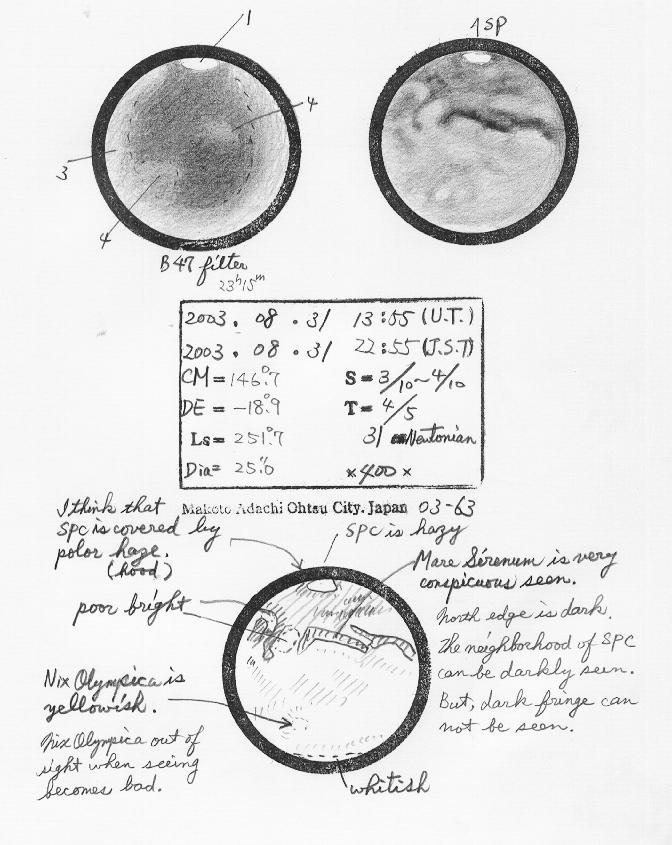 1
↑SP
4
3
4
B47 filter
23h15m
2003. 08. 31 13:55 (U.T.)
2003. 08. 31 22:55 (J.S.T)
CM = 146.°7 S = 3/10~4/10
DE = -18.°9 T = 4/5
Ls = 251.°7 31 Newtonian
Dia= 25."0 ×400×
Makoto Adachi Ohtsu City. Japan 03-63
I think that
SPC is covered by
polor haze.
(hood)
SPC is hazy
Mare Sirenum is very
conspicuous seen.
poor bright
North edge is dark.
The neighborhood of SPC
can be darkly seen.
But, dark fringe can
not be seen.
Nix Olympica is
yellowish.
Nix Olympica out of
sight when seeing
becomes bad.
whitish